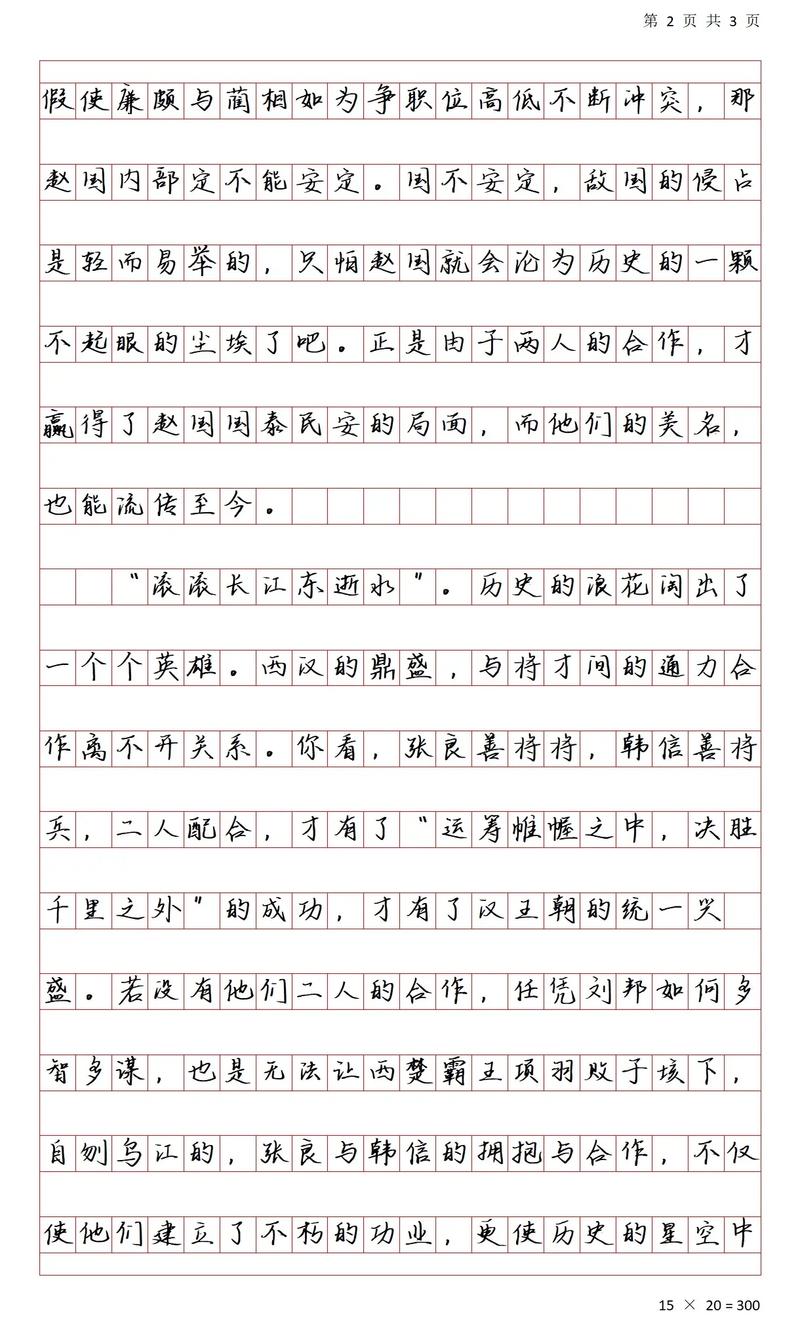 第 2 页 共 3 页
假使廉颇与蔺相如为争职位高低不断冲突，那
赵国内部定不能安定。国不安定，敌国的侵占
是轻而易举的，只怕赵国就会沦为历史的一颗
不起眼的尘埃了吧。正是由于两人的合作，才
赢得了赵国国泰民安的局面，而他们的美名，
也能流传至今。
“滚滚长江东逝水”。历史的浪花淘出了
一个个英雄。西汉的鼎盛，与将才间的通力合
作离不开关系。你看，张良善将将，韩信善将
兵，二人配合，才有了“运筹帷幄之中，决胜
千里之外”的成功，才有了汉王朝的统一兴
盛。若没有他们二人的合作，任凭刘邦如何多
智多谋，也是无法让西楚霸王项羽败于垓下，
自刎乌江的，张良与韩信的拥抱与合作，不仅
使他们建立了不朽的功业，更使历史的星空中
15 × 20 = 300